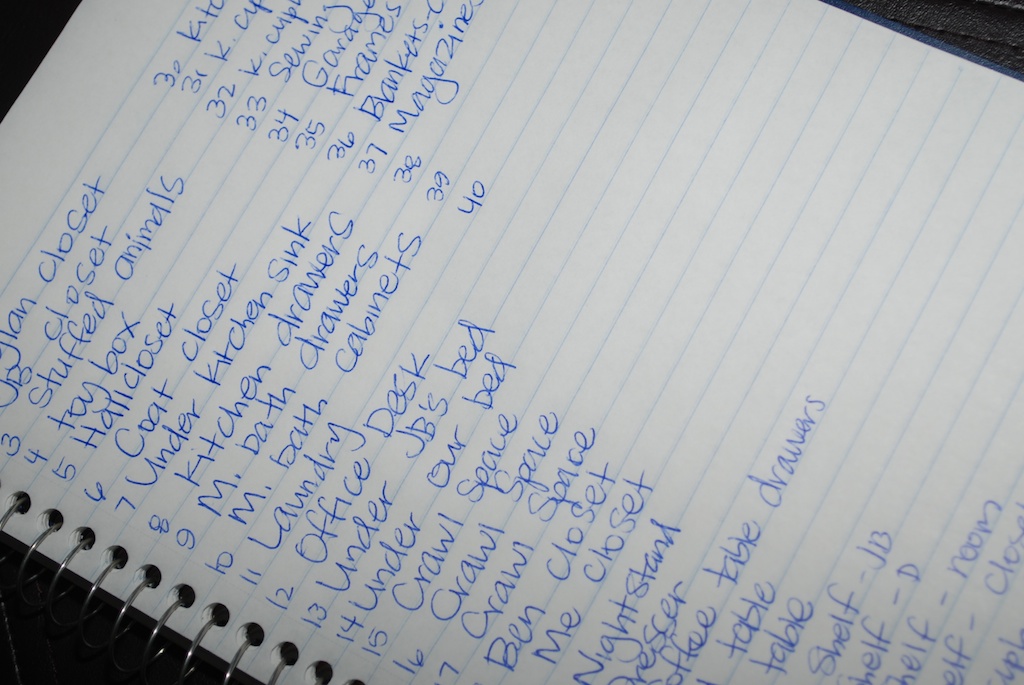 Dylan closet
closet
3 Stuffed animals
4 toy box
5 Hall closet
6 Coat closet
7 Under kitchen sink
8 Kitchen drawers
9 M. bath drawers
10 M. bath cabinets
11 Laundry
12 Office Desk
13 Under JB's bed
14 Under our bed
15 Crawl Space
16 Crawl Space
17 Crawl Space
Ben closet
Me closet
Nightstand
Dresser
Coffee table drawers
table
table
Shelf - JB
Shelf - D
Shelf - room
30
31 K.
32 K.
33 Sewing
34
35 Frames
36
37 Magazines
38
39
40